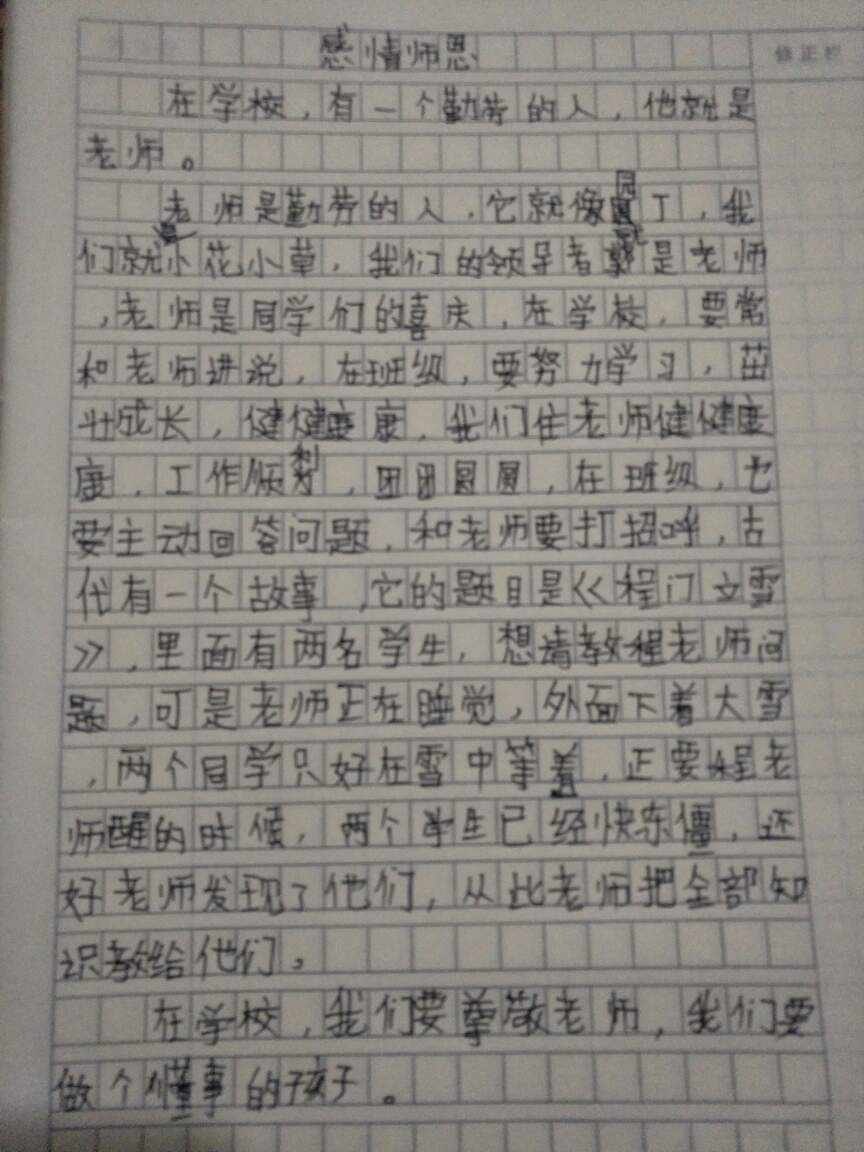 修正栏
感情师恩
在学校，有一个勤劳的人，他就是
老师。
老师是勤劳的人，它就像园丁，我
们就是小花小草，我们的领导者就是老师
，老师是同学们的喜庆，在学校，要常
和老师讲说，在班级，要努力学习，茁
壮成长，健健康康，我们住老师健健康
康，工作顺利，团团圆圆，在班级，也
要主动回答问题，和老师要打招呼，古
代有一个故事，它的题目是《程门立雪
》，里面有两名学生，想请教程老师问
题，可是老师正在睡觉，外面下着大雪
，两个同学只好在雪中等着，正要程老
师醒的时候，两个学生已经快冻僵，还
好老师发现了他们，从此老师把全部知
识教给他们。
在学校，我们要尊敬老师，我们要
做个懂事的孩子。